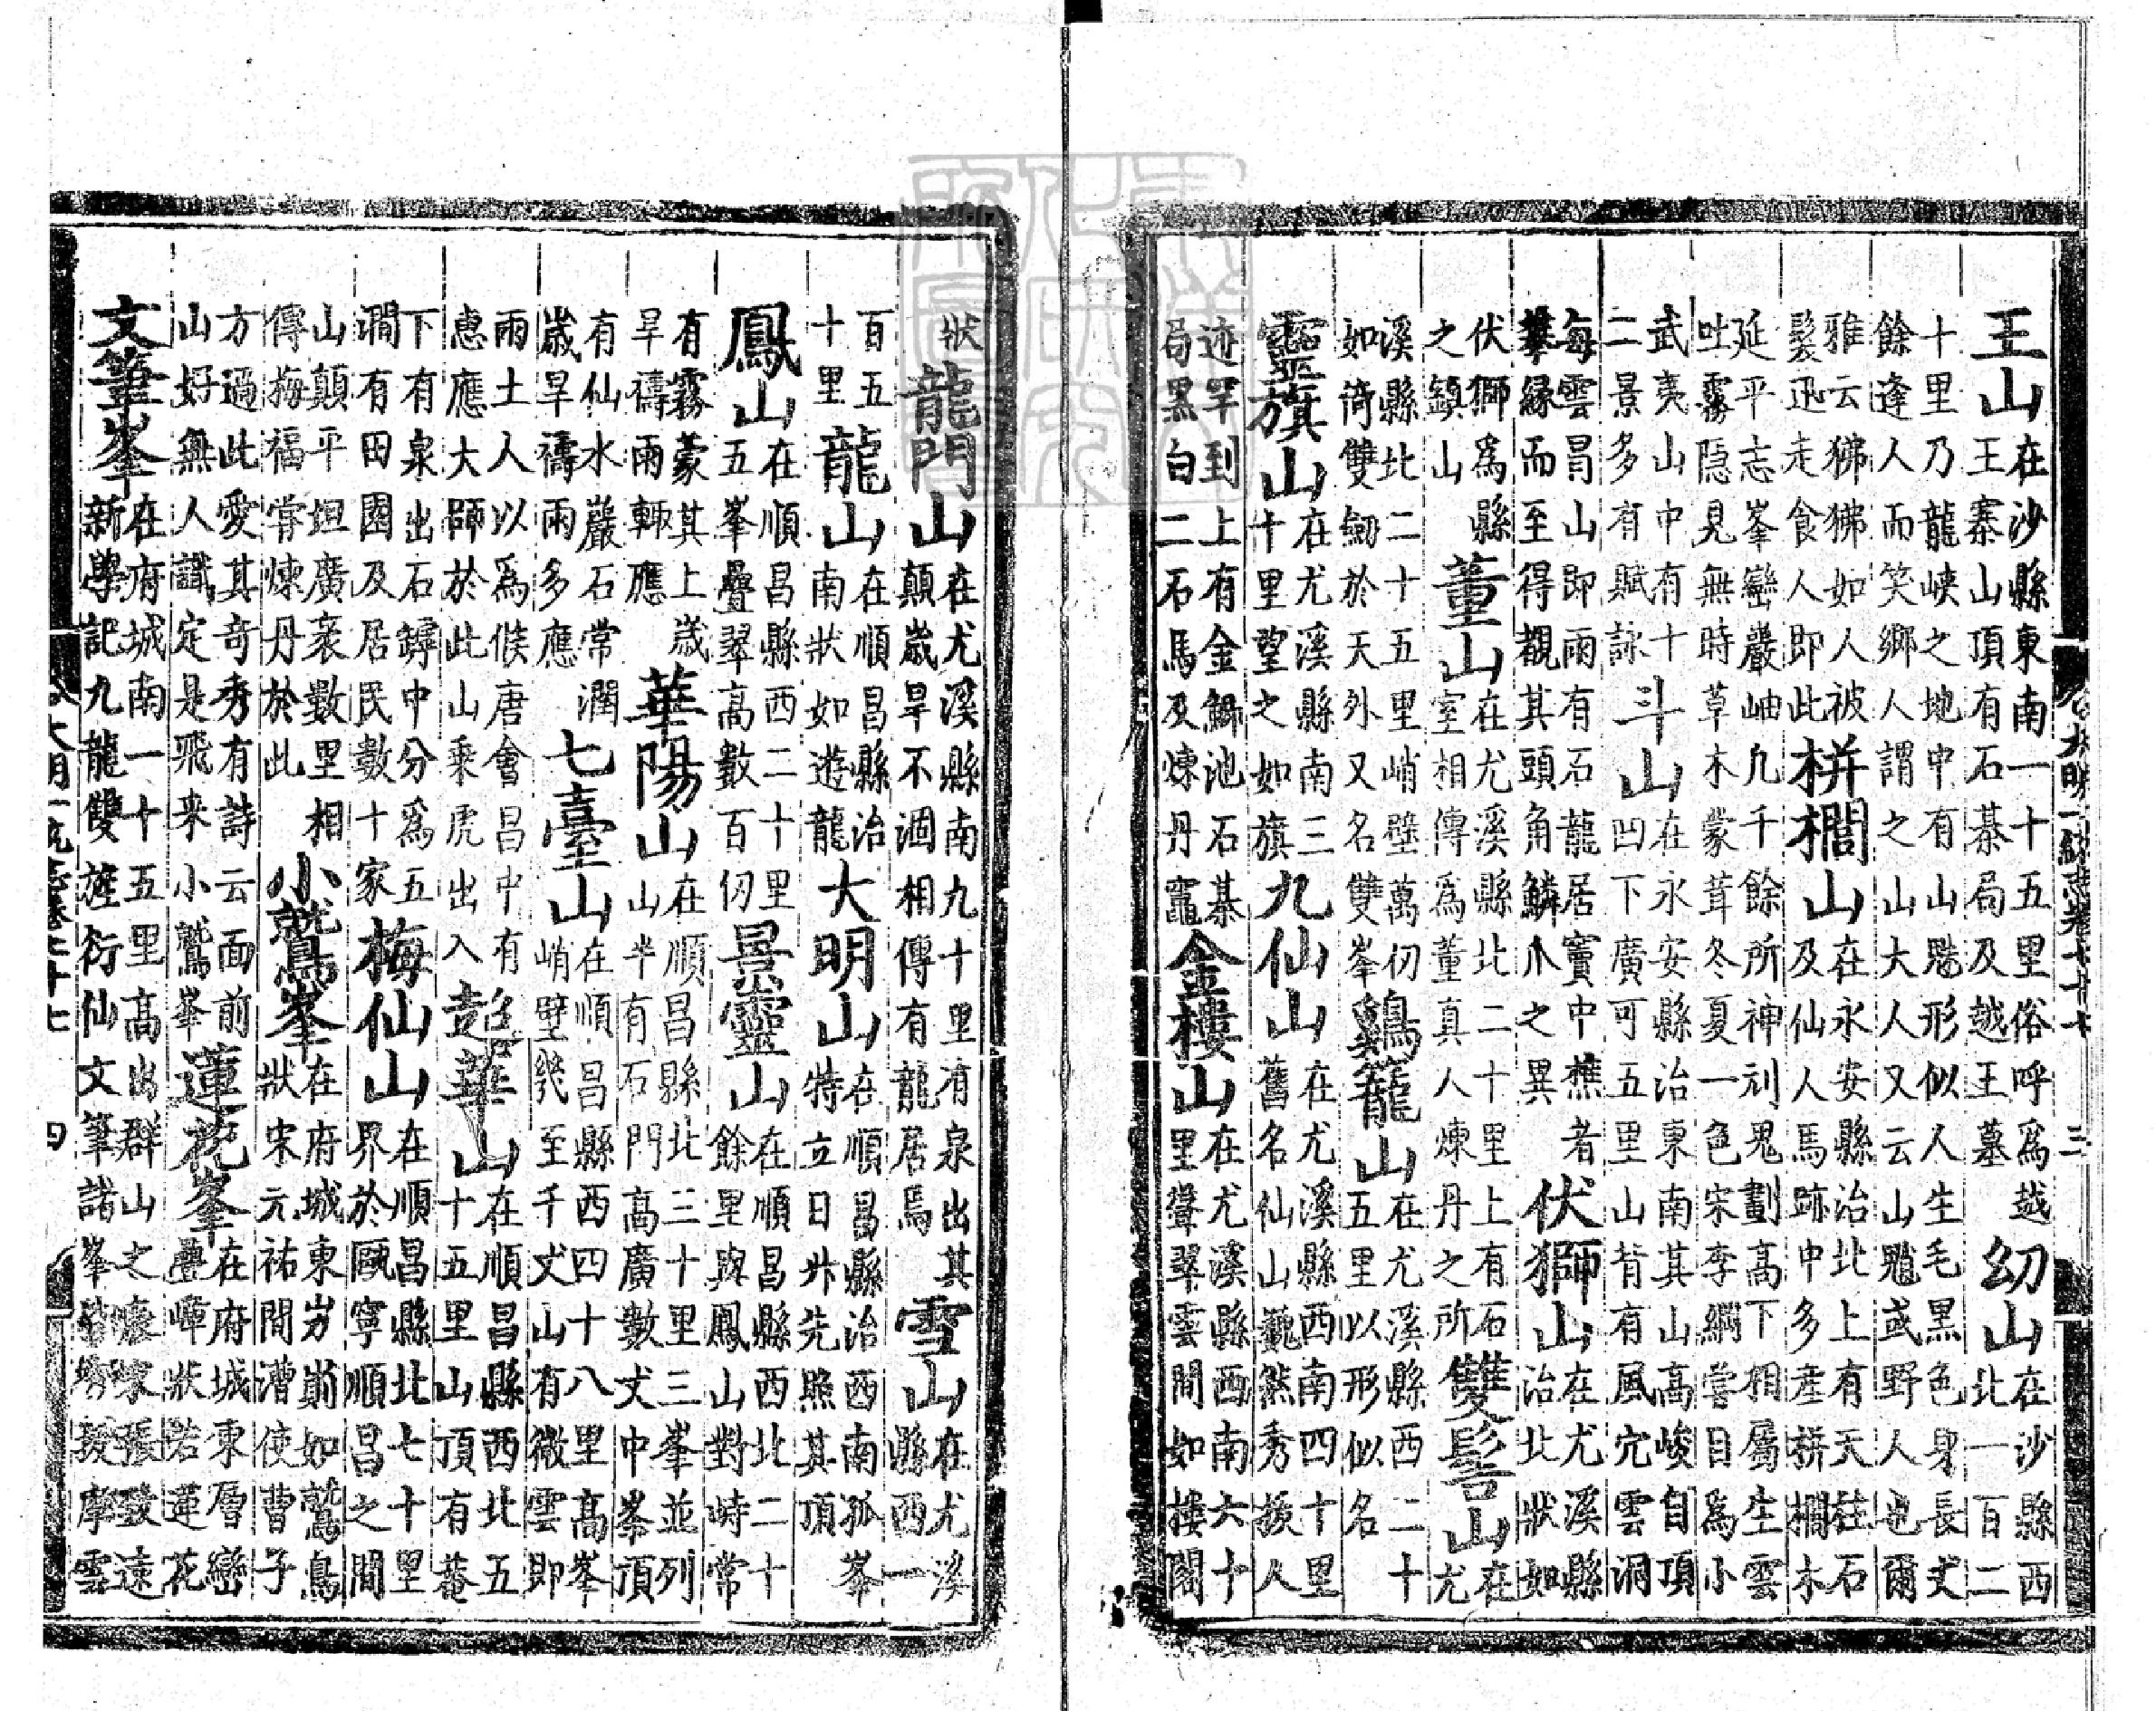 王山在沙縣東南一十五里俗呼爲越
王寨山頂有石棊局及越王墓
幻山在沙縣西
北一百二
十里乃龍峽之地中有山魈形似人生毛黑色身長丈
餘逢人而笑鄉人謂之山大人又云山魈或野人也爾
雅云狒狒如人被
髮迅走食人即此
栟櫚山在永安縣治北上有天柱石
及仙人馬跡中多產栟櫚木
延平志峯巒巖岫凢千餘所神刓鬼劃高下相屬生雲
吐霧隱見無時草木蒙茸冬夏一色宋李綱嘗目爲小
武夷山中有十
二景多有賦詠
斗山在永安縣治東南其山高峻自頂
凹下廣可五里山背有風穴雲洞
每雲冒山即雨有石龍居竇中樵者
攀緣而至得觀其頭角鱗爪之異
伏獅山在尤溪縣
治北狀如
伏獅爲縣
之鎮山
董山在尤溪縣北二十里上有石
室相傳爲董真人煉丹之所
雙髻山在
尤
溪縣北二十五里峭壁萬仞
如倚雙劒於天外又名雙峯
鷄籠山在尤溪縣西二十
五里以形似名
靈旗山在尤溪縣南三
十里望之如旗
九仙山在尤溪縣西南四十里
舊名仙山巍然秀拔人
迹罕到上有金鯽池石棊
局黑白二石馬及煉丹竈
金樓山在尤溪縣西南六十
里聳翠雲間如接閣
大明一統志卷七十七
三
狀
龍門山在尤溪縣南九十里有泉出其
顛歲旱不涸相傳有龍居焉
雪山在尤溪
縣西一
百五
十里
龍山在順昌縣治
南狀如遊龍
大明山在順昌縣治西南孤峯
特立日升先照其頂
鳳山在順昌縣西二十里
五峯疊翠高數百仞
景靈山在順昌縣西北二十
餘里與鳳山對峙常
有霧蒙其上歲
旱禱雨輒應
華陽山在順昌縣北三十里三峯並列
山半有石門高廣數丈中峯頂
有仙水巖石常潤
歲旱禱雨多應
七臺山在順昌縣西四十八里高峯
峭壁幾至千丈山有微雲即
雨土人以爲候唐會昌中有
惠應大師於此山乘虎出入
超華山在順昌縣西北五
十五里山頂有菴
下有泉出石罅中分爲五
澗有田園及居民數十家
梅仙山在順昌縣北七十里
界於甌寧順昌之間
山顛平坦廣袤數里相
傳梅福嘗煉丹於此
小鷲峯在府城東岃崱如鷲鳥
狀宋元祐間漕使曹子
方過此愛其奇秀有詩云面前
山好無人識定是飛来小鷲峯
蓮花峯在府城東層巒
疊嶂狀若蓮花
文筆峯在府城南一十五里高出群山之宋張致遠
新學記九龍雙旌衍仙文筆諸峯秀拔摩雲
大明一統志卷七十七
四